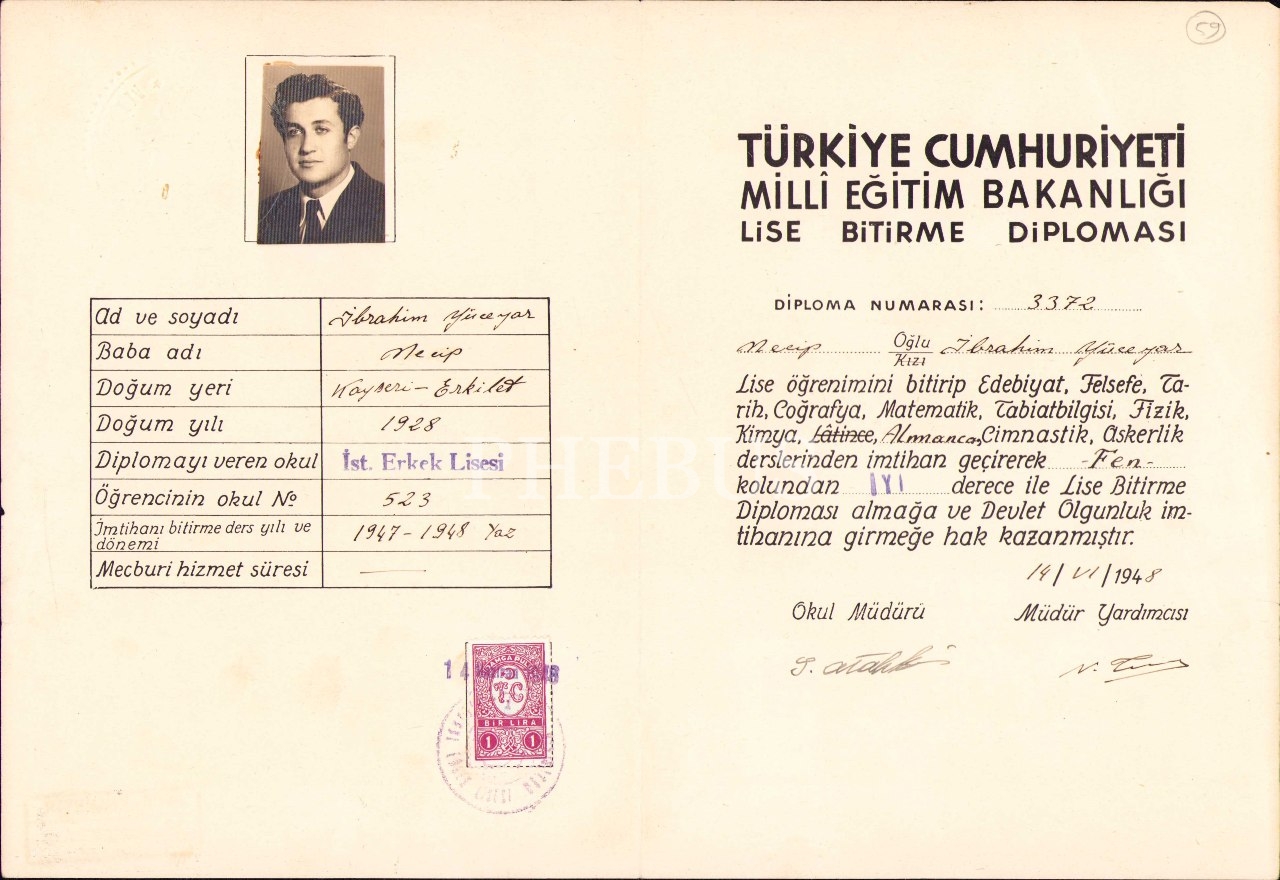 59
Ad ve soyadı İbrahim Yüceyar
Baba adı Necip
Doğum yeri Kayseri - Erkilet
Doğum yılı 1928
Diplomayı veren okul İst. Erkek Lisesi
Öğrencinin okul No 523
İmtihanı bitirme ders yılı ve dönemi 1947-1948 Yaz
Mecburi hizmet süresi —
14 1948
DAMGA PULU
T.C
BİR LİRA
1 1
TÜRKİYE CUMHURİYETİ
MİLLÎ EĞİTİM BAKANLIĞI
LİSE BİTİRME DİPLOMASI
DİPLOMA NUMARASI: 3372
Necip Oğlu Kızı İbrahim Yüceyar
Lise öğrenimini bitirip Edebiyat, Felsefe, Ta-
rih, Coğrafya, Matematik, Tabiatbilgisi, Fizik,
Kimya, Lâtince, Almanca, Cimnastik, Askerlik
derslerinden imtihan geçirerek -Fen-
kolundan İYİ derece ile Lise Bitirme
Diploması almağa ve Devlet Olgunluk im-
tihanına girmeğe hak kazanmıştır.
14/VI/1948
Okul Müdürü Müdür Yardımcısı
PHEBUS